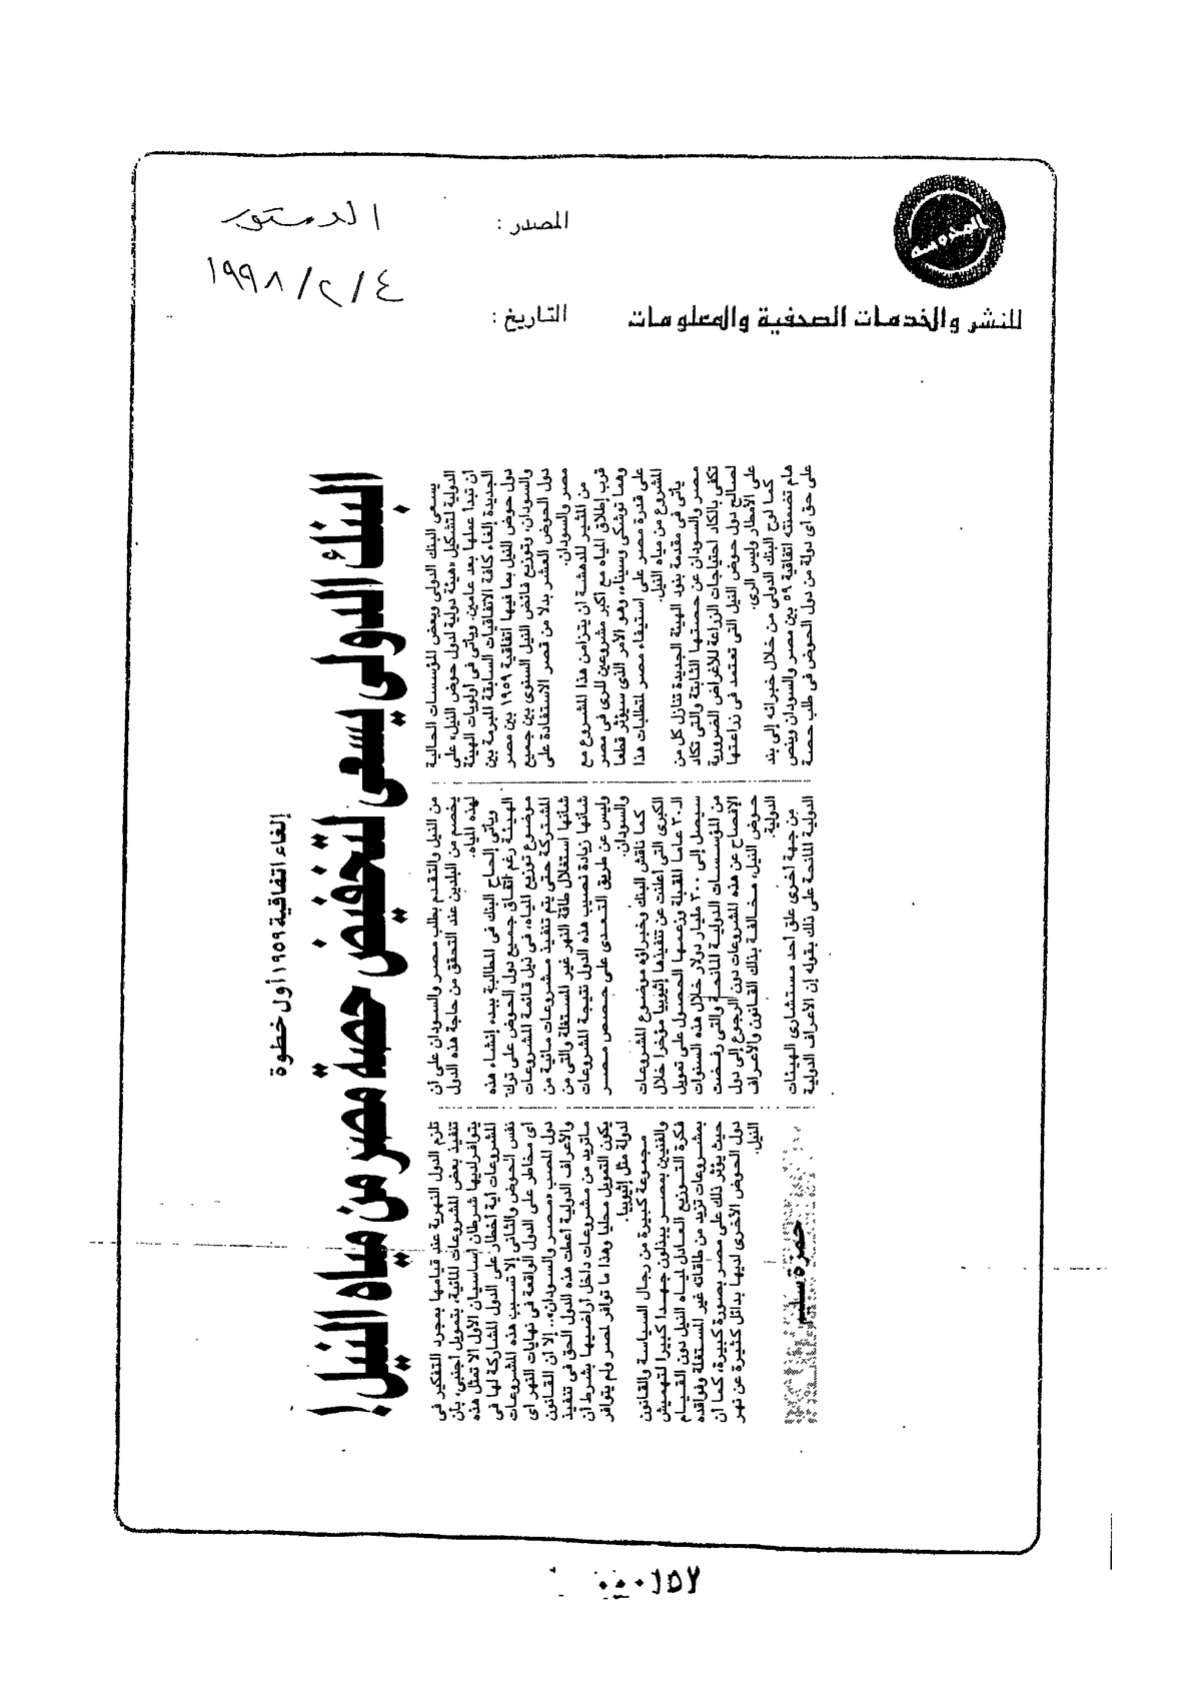 المدرسة
للنشر والخدمات الصحفية والمعلومات
المصدر :
الدستور
التاريخ :
٤/٢/١٩٩٨
إلغاء اتفاقية ١٩٥٩ أول خطوة
البنك الدولى يسعى لتخفيض حصة مصر من مياه النيل!
يسعى البنك الدولى وبعض المؤسسات المالية
الدولية لتشكيل «هيئة دولية لدول حوض النيل» على
أن تبدأ عملها بعد عامين. ويأتى فى أولويات الهيئة
الجديدة إلغاء كافة الاتفاقيات السابقة المبرمة بين
دول حوض النيل بما فيها اتفاقية ١٩٥٩ بين مصر
والسودان، وتوزيع فائض النيل السنوى بين جميع
دول الحوض العشر بدلا من قصر الاستفادة على
مصر والسودان.
من المثير للدهشة أن يتزامن هذا المشروع مع
قرب إطلاق المياه مع أكبر مشروعين للرى فى مصر
وهما توشكى وسيناء، وهو الأمر الذى سيؤثر قطعا
على قدرة مصر على استيفاء مصر لمتطلبات هذا
المشروع من مياه النيل.
يأتى فى مقدمة بنود الهيئة الجديدة تنازل كل من
مصر والسودان عن حصتها الثابتة والتى تكاد
تكفى بالكاد احتياجات الزراعة للأغراض الضرورية
لصالح دول حوض النيل التى تعتمد فى زراعتها
على الأمطار وليس الرى.
كما لوح البنك الدولى من خلال خبرائه إلى بند
هام تضمنته اتفاقية ٥٩ بين مصر والسودان وينص
على حق أى دولة من دول الحوض فى طلب حصة
من النيل والتقدم بطلب مصر والسودان على أن
يخصم من البلدين عند التحقق من حاجة هذه الدول
لهذه المياه.
ويأتى إلحاح البنك فى المطالبة ببدء إنشاء هذه
الهيئة رغم اتفاق جميع دول الحوض على ترك
موضوع توزيع المياه، فى ذيل قائمة المشروعات
المشتركة حتى يتم تنفيذ مشروعات مائية من
شأنها استغلال طاقة النهر غير المستغلة والتى من
شأنها زيادة نصيب هذه الدول نتيجة المشروعات
وليس عن طريق التعدى على حصص مصر
والسودان.
كما ناقش البنك وخبراؤه موضوع المشروعات
الكبرى التى أعلنت عن تنفيذها إثيوبيا مؤخرا خلال
الـ٣٠ عاما المقبلة وزعمها الحصول على تمويل
سيصل إلى ٣٠٠ مليار دولار خلال هذه السنوات
من المؤسسات الدولية المانحة والتى رفضت
الإفصاح عن هذه المشروعات دون الرجوع إلى دول
حوض النيل، مخالفة بذلك القانون والأعراف
الدولية.
من جهة أخرى علق أحد مستشارى الهيئات
الدولية المانحة على ذلك بقوله إن الأعراف الدولية
تلزم الدول النهرية عند قيامها بمجرد التفكير فى
تنفيذ بعض المشروعات المائية، بتمويل أجنبى؛ بأن
يتوافر لديها شرطان أساسيان الأول ألا تمثل هذه
المشروعات أية أخطار على الدول المشاركة لها فى
نفس الحوض والثانى إلا تسبب هذه المشروعات
أى مخاطر على الدول الواقعة فى نهايات النهر أى
دول المصب «مصر والسودان».. إلا أن القانون
والأعراف الدولية أعطت هذه الدول الحق فى تنفيذ
ماتريد من مشروعات داخل أراضيها بشرط أن
يكون التمويل محليا وهذا ما توافر لمصر ولم يتوافر
لدولة مثل إثيوبيا.
مجموعة كبيرة من رجال السياسة والقانون
والفنيين بمصر يبذلون جهدا كبيرا لتهميش
فكرة التوزيع العادل لمياه النيل دون القيام
بمشروعات تزيد من طاقاته غير المستغلة وفواقده
حيث يؤثر ذلك على مصر بصورة كبيرة، كما أن
دول الحوض الأخرى لديها بدائل كثيرة عن نهر
النيل.
٠٠٠١٥٧